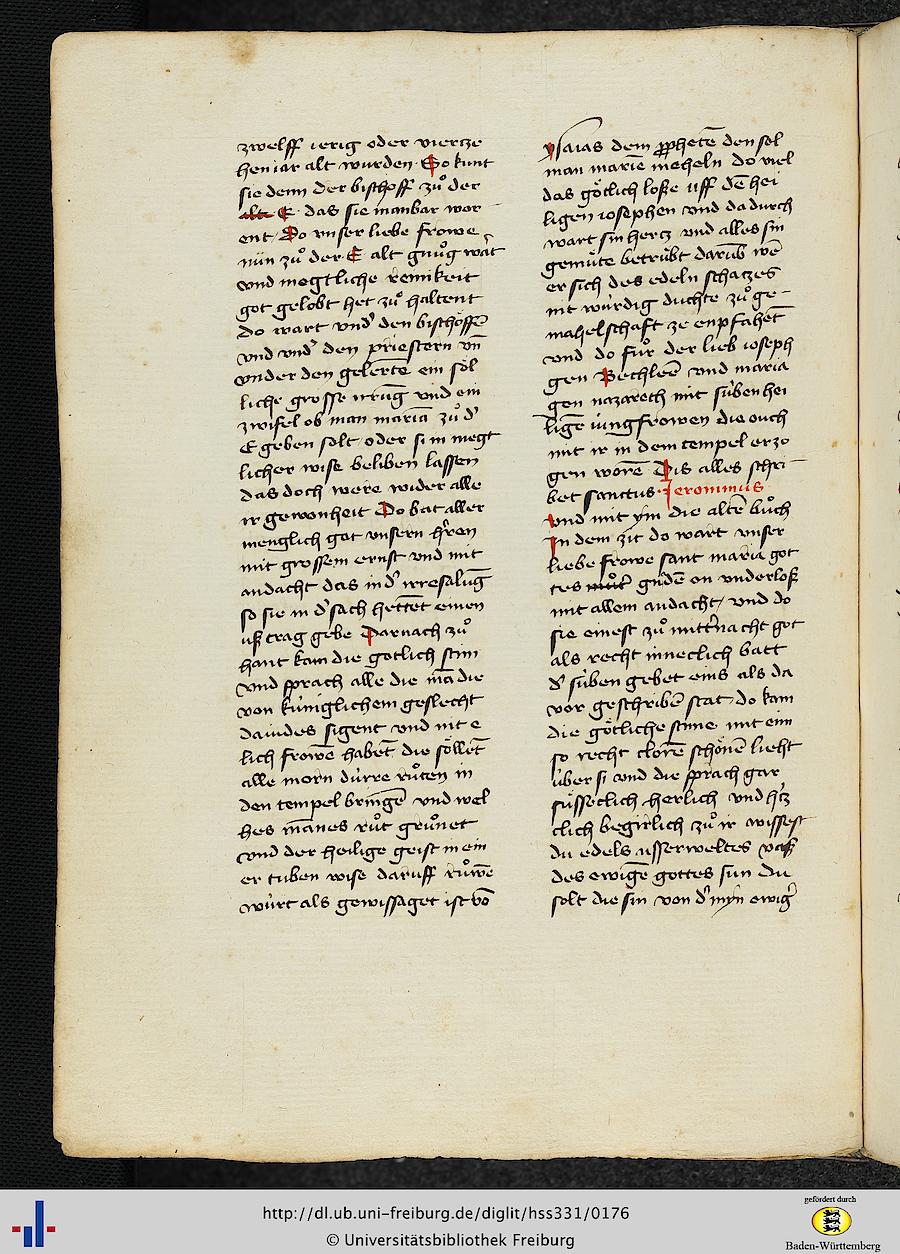 zwelff ierig oder vierze
hen iar alt wurden · So kunt
sie denn der bischoff zuͦ der
alte E · das sie manbar wor
ent · Do vnser liebe frowe
nün zuͦ der E alt gnuͦg wāt
vnd megtliche reinikeit
got gelobt het zuͦ haltent
do wart vnd' den bischöffē
vnd vnd' den priestern vn̄
vnder den gelerte ein söl
liche grosse irrūg vnd ein
zwifel ob man maria zuͦ d'
E geben solt oder si in megt
licher wise beliben lassen
das doch were wider alle
ir gewonheit Do bat aller
menglich got vnsern h'ren
mit grossem ernst vnd mit
andacht das in d' irresalūg
so sie in d' sach hettēt einen
usz trag gebe Darnach zuͦ
hant kam die gotlich stim
vnd sprach alle die mā die
von kúniglichem geslecht
dauides sigent vnd nit e
lich frowē habēt die söllēt
alle morn dúrre ruͦten in
den tempel bringē vnd wel
hes mānes ruͦt gruͦnet
vnd der heilige geist in ein
er tuben wise daruff ruͦwē
wúrt als gewissaget ist vō
ysaias dem prophetē den sol
man marīe meheln do viel
das götlich losze uff dē hei
ligen iosephen vnd da durch
wart sin hertz vnd alles sin
gemúte betrúbt darūb wē
er sich des edeln schatzes
nit wúrdig duchte zuͦ ge-
mahelschaft ze enpfahēt
vnd do fuͦr der lieb ioseph
gen Bethleē vnd maria
gen nazareth mit súben hei
ligē iungfrowen die ouch
mit ir in dem tempel erzo
gen wore Dis alles schri-
bet sanctus · Jeronimus
vnd mit ym die altē buͦch
In dem zit do wart vnser
liebe frowe sant maria got
tes muͦt' gndē on vnderlosz
mit allem andacht / vnd do
sie einest zuͦ mittnacht got
als recht inneclich batt
d' súben gebet eins als da
vor geschribē stat · do kam
die götliche stime mit eim
so recht clorē schönē lieht
úber si vnd die sprach gar
süsseclich herlich vnd h'tz
clich begirlich zuͦ ir wissest
du edels usserweltes vasz
des ewigē gottes sun du
solt die sin von d' myn ewig'
http://dl.ub.uni-freiburg.de/diglit/hss331/0176
© Universitätsbibliothek Freiburg
gefördert durch
Baden-Württemberg